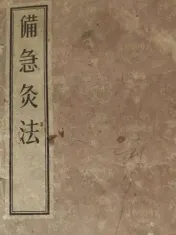 備急灸法